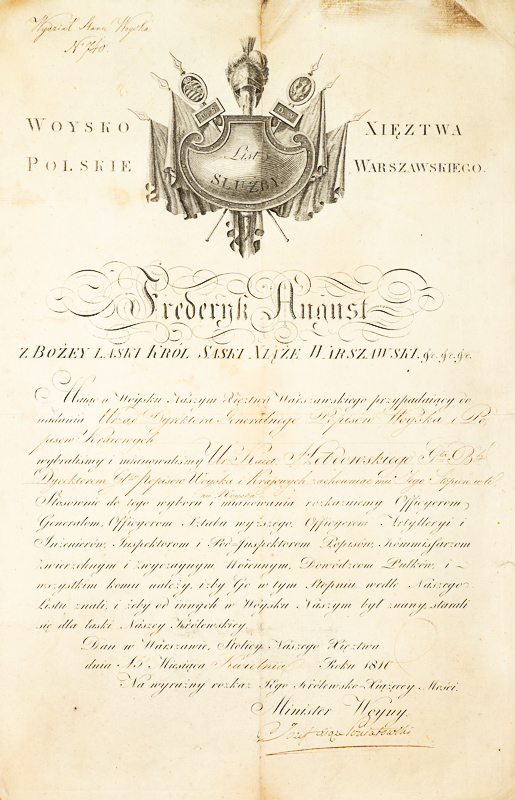 Wydział Stanu Woyska
N 740
WOYSKO POLSKIE
XIĘZTWA WARSZAWSKIEGO.
List
SŁUZBY.
Frederyk August
Z BOŻEY ŁASKI KRÓL SASKI XIĄŻE WARSZAWSKI, &c. &c. &c.
Maiąc w Woysku Naszym Xięztwa Warszawskiego przypadaiący do
nadania Urząd Dyrektora Generalnego Popisów Woyska i Po
pisów Kraiowych
wybraliśmy i mianowaliśmy Ur.
Dyrektorem Popisów Woyska i Kraiowych zachowuiąc mu Jego Stopień
w Woysku
Stosownie do tego wyboru i mianowania rozkazuiemy Officyerom,
Generałom, Officyerom Sztabu wyższego, Officyerom Artylleryi i
Inżenierów, Inspektorom i Pod-Inspektorom Popisów, Kommissarzom
zwierzchnym i zwyczaynym Woiennym, Dowódzcom Pułków, i
wszystkim komu należy, iżby Go w tym Stopniu wedle Naszego
Listu znali, i żeby od innych w Woysku Naszym był znany, starali
się dla łaski Naszey Królewskiey.
Dan w Warszawie, Stolicy Naszego Xięztwa
dnia 15 Miesiąca Kwietnia Roku 1810
Na wyraźny rozkaz Jego Królewsko-Xiążęcey Mości.
Minister Woyny.
Józef Xiąże Poniatowski